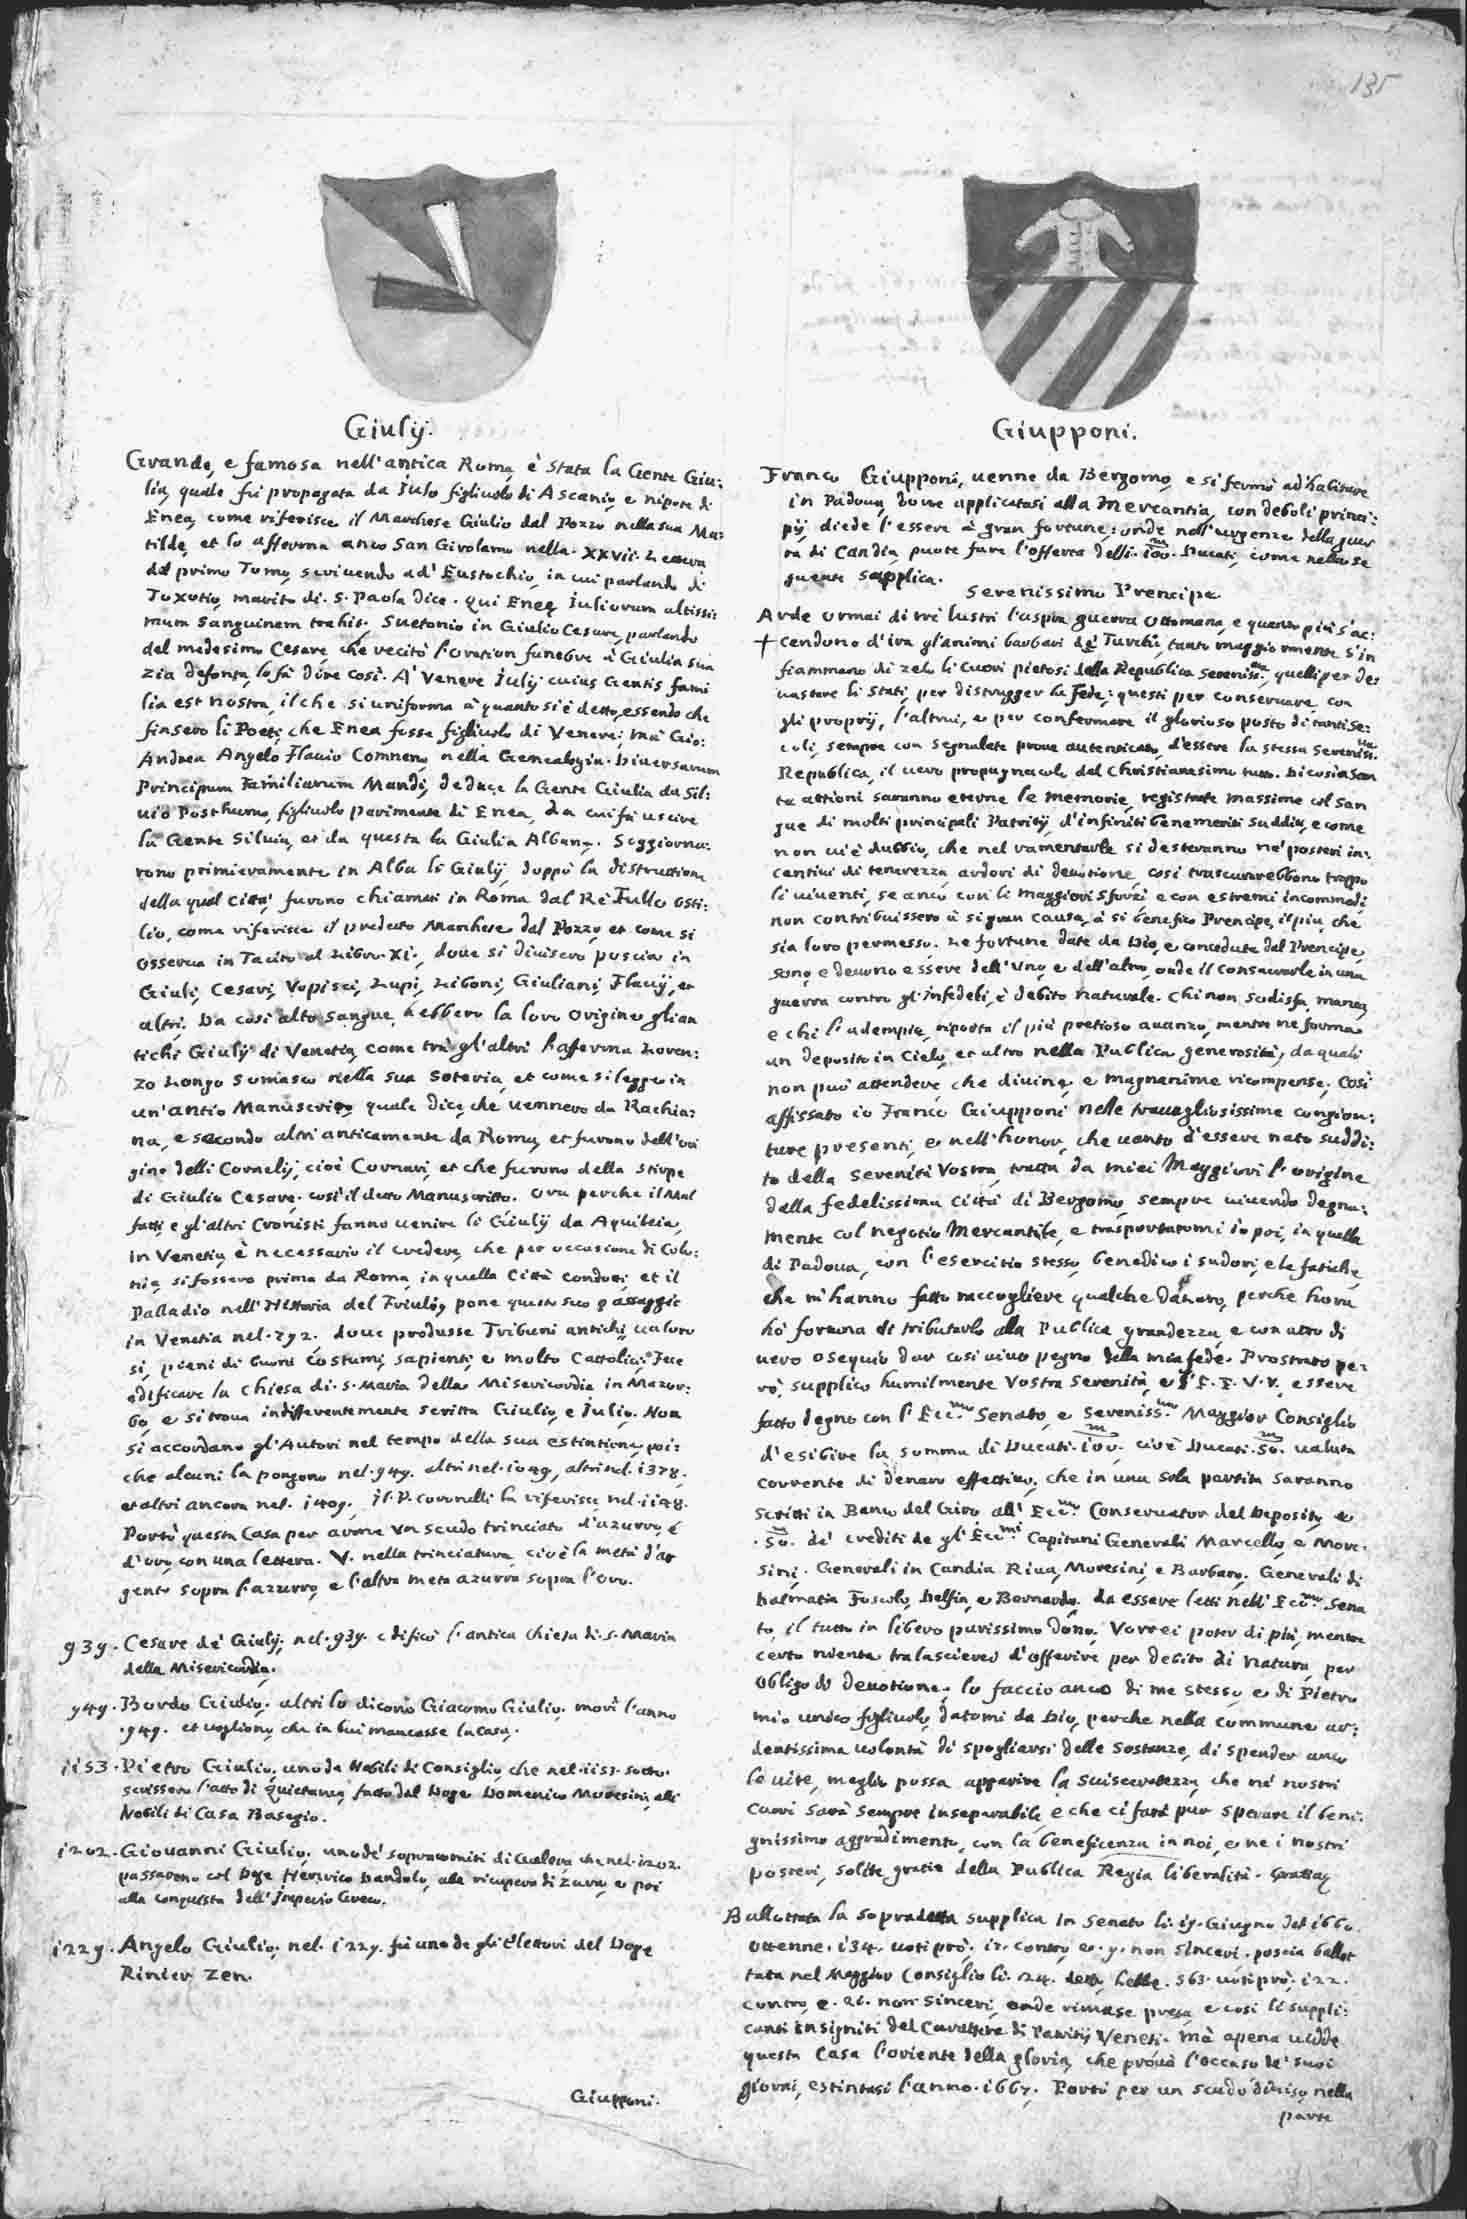 135
Giulÿ.
Grande, e famosa nell'antica Roma, è stata la Gente Giu:
lia, quale fù propagata da Julo figliuolo di Ascanio, e nipote di
Enea, come riferisce il Marchese Giulio dal Pozzo nella sua Ma:
tilde, et lo afferma anco San Girolamo nella. XXVII. Lettera
del primo Tomo, scrivendo ad' Eustochio, in cui parlando di
Toxotio, marito di. S. Paola dice. qui Eneę Juliorum altissi:
mum sanguinem trahit. Suetonio in Giulio Cesare, parlando
del medesimo Cesare che recitò l'oration funebre à Giulia sua
zia defonta, lo fà dire così. A' Venere Julÿ cuius Gentis fami
lia est nostra, il che si uniforma à quanto si è detto, essendo che
finsero li Poeti, che Enea fosse figliuolo di Venere; mà Gio:
Andrea Angelo Flavio Comneno nella Genealogia. Diversarum
Principum Familiarum Mundi, deduce la Gente Giulia da Sil:
vio Posthumo, figliuolo parimente di Enea, da cui fà uscire
la Gente Silvia, et da questa la Giulia Albana. Soggiorna:
rono primieramente in Alba li Giulÿ, doppò la distruttione
della qual Città, furono chiamati in Roma dal Rè Tullo Osti:
lio, come riferisce il predetto Marchese dal Pozzo, et come si
osserva in Tacito al Libro. XI., doue si divisero poscia in
Giuli, Cesari, Vopisci, Lupi, Liboni, Giuliani, Flavÿ, et
altri. Da così alto sangue, hebbero la loro origine gli an
tichi Giulÿ di Venetia, come trà gl'altri l'afferma Loren:
zo Longo Somasco nella sua Soteria, et come si legge in
un'antico Manuscritto quale dice, che vennero da Rachia:
na, e secondo altri anticamente da Roma, et furono dell'ori
gine delli Cornelÿ, cioè Cornari, et che furono della stirpe
di Giulio Cesare. così il detto Manuscritto. Ora perche il Mal
fatti, e gl'altri Cronisti fanno venire li Giulÿ da Aquileia,
in Venetia, è necessario il credere, che per occasione di Colo:
nia, si fossero prima da Roma, in quella Città condotti, et il
Palladio nell'Historia del Friuli, pone questo suo passaggio
in Venetia nel. 792. doue produsse Tribuni antichi, valoro
si, pieni di buoni costumi, sapienti, e molto Cattolici. Fece
edificare la Chiesa di. S. Maria della Misericordia in Mazor:
bo, e si troua indifferentemente scritta Giulio, e Julio. Non
si accordano gl'Autori nel tempo della sua estintione, poi:
che alcuni la pongono nel. 949. altri nel. 1049, altri nel. 1378.
et altri ancora nel. 1409. il P. Coronelli la riferisce nel. 1148.
Portò questa Casa per arma un scudo trinciato d'azurro, è
d'oro, con una lettera. V. nella trinciatura, cioè la metà d'ar
gento sopra l'azurro, e l'altra metà azurra sopra l'oro.
939. Cesare de' Giulÿ, nel. 939. edificò l'antica Chiesa di. S. Maria
della Misericordia.
949. Bordo Giulio, altri lo dicono Giacomo Giulio, morì l'anno
.949. et vogliono, che in lui mancasse la casa.
1153. Pietro Giulio, uno de Nobili di Consiglio, che nel. 1153. sotto.
scrissero l'atto di quietanza, fatto dal Doge Domenico Moresini, alli
Nobili di Casa Basegio.
1202. Giovanni Giulio, uno de' sopracomiti di Galera che nel. 1202.
passarono col Doge Henrico Dandolo, alla ricupera di Zara, e poi
alla conquista dell'Imperio Greco.
1229. Angelo Giulio, nel. 1229. fù uno de gli Elettori del Doge
Rinier Zen.
Giupponi.
Giupponi.
Franco Giupponi, venne da Bergomo, e si fermò ad'habitare
in Padoua, doue applicatosi alla mercantia, con deboli princi:
pÿ diede l'essere à gran fortune; onde nell'urgenze della guer
ra di Candia, puote fare l'offerta delli. 100.m Ducati, come nella se
guente supplica.
Serenissimo Prencipe
Arde ormai di trè lustri l'aspra guerra Ottomana, e quanto più s'ac:
+ cendono d'ira gl'animi barbari de' Turchi, tanto maggiormente s'in
fiammano di zelo li Cuori pietosi della Republica Sereniss.ma, quelli per de:
uastare li Stati, per distrugger la Fede; questi per conseruare, con
gli proprÿ, l'altrui, e per confermare il glorioso posto di tanti se:
coli, sempre con segnalate proue autenticato, d'essere la stessa Sereniss.ma
Republica, il uero propugnacolo del Christianesimo tutto. Di così san
te attioni saranno eterne le memorie, registrate massime col san
gue di molti principali Patritÿ, d'infiniti benemeriti sudditi, e come
non ui è dubbio, che nel ramentarle si desteranno ne' posteri in:
centiui di tenerezza, ardori di deuotione, così trascurarebbono troppo
li uiuenti, se anco con li maggiori sforzi, e con estremi incommodi
non contribuissero à sì gran causa, à sì benefico Prencipe, il più, che
sia loro permesso. Le fortune date da Dio, e concedute dal Prencipe,
sono, e deuono essere dell'uno, e dell'altro, onde il consacrarle in una
guerra contro gl'Infedeli, è debito naturale. Chi non sodisfa, manca,
e chi l'adempie, riporta il più pretioso auanzo, mentre ne forma
un deposito in Cielo, et altro nella Publica generosità, da quali
non può attendere che diuine, e magnanime ricompense. Così
affissato io Franco Giupponi nelle trauagliosissime congion:
ture presenti, e nell'honor, che uanto d'essere nato suddi:
to della Serenità Vostra, tratta da miei Maggiori l'origine
dalla fedelissima Città di Bergomo, sempre uiuendo degna:
mente col negotio Mercantile, e trasportatomi io poi, in quella
di Padoua, con l'esercitio stesso, benedico i sudori, e le fatiche,
che m'hanno fatto raccogliere qualche danaro, perche hora
hò fortuna di tributarlo alla Publica grandezza, e con atto di
uero osequio dar così uiuo pegno della mia fede. Prostrato pe:
rò, supplico humilmente Vostra Serenità, e l'E. E. V. V. essere
fatto degno con l'Ecc.mo Senato, e Sereniss.mo Maggior Consiglio
d'esibire la summa di Ducati. 100.m cioè Ducati. 50.m ualuta
corrente di denaro effettiuo, che in una sola partita saranno
scritti in Banco del Giro all'Ecc.mo Conseruator del Deposito, e
.50.m de' crediti de gl'Ecc.mi Capitani Generali Marcello, e More:
sini. Generali in Candia Riua, Moresini, e Barbaro. Generali di
Dalmatia Foscolo, Delfin, e Bernardo. da essere letti nell'Ecc.mo Sena
to, il tutto in libero purissimo dono. Vorrei poter di più, mentre
certo niente tralascierei d'offerire per debito di natura, per
obligo di deuotione. lo faccio anco di me stesso, e di Pietro
mio unico figliuolo, datomi da Dio, perche nella commune ar:
dentissima uolontà di spogliarsi delle sostanze, di spender anco
le uite, meglio possa apparire la suisceratezza, che ne' nostri
Cuori sarà sempre inseparabile, e che ci farà pur sperare il beni:
gnissimo aggradimento, con la beneficenza in noi, e ne i nostri
posteri, solite gratie della Publica Regia liberalità. Gratiæ
Ballottata la sopradetta supplica in Senato li. 19. Giugno del 1660.
ottenne. 134. uoti prò, 12. contro, e. 9. non sinceri. poscia ballot
tata nel Maggior Consiglio li. 24. detto, hebbe. 563. uoti prò, 122.
contro, e. 26. non sinceri, onde rimase presa, e così li suppli:
canti insigniti del Carattere di Patritÿ Veneti. mà apena uidde
questa Casa l'oriente della gloria, che prouò l'occaso de' suoi
giorni, estintasi l'anno. 1667. Portò per un scudo diuiso, nella
parte